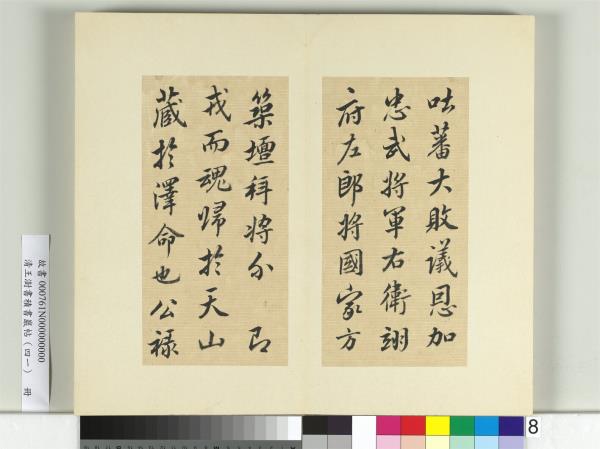 吐蕃大敗議恩加
忠武將軍右衛翊
府左郎將國家方
築壇拜將分
戎而魂歸於天山
藏於澤命也公祿
故書 000761N000000000
清王澍書積書巖帖（四一） 冊
8